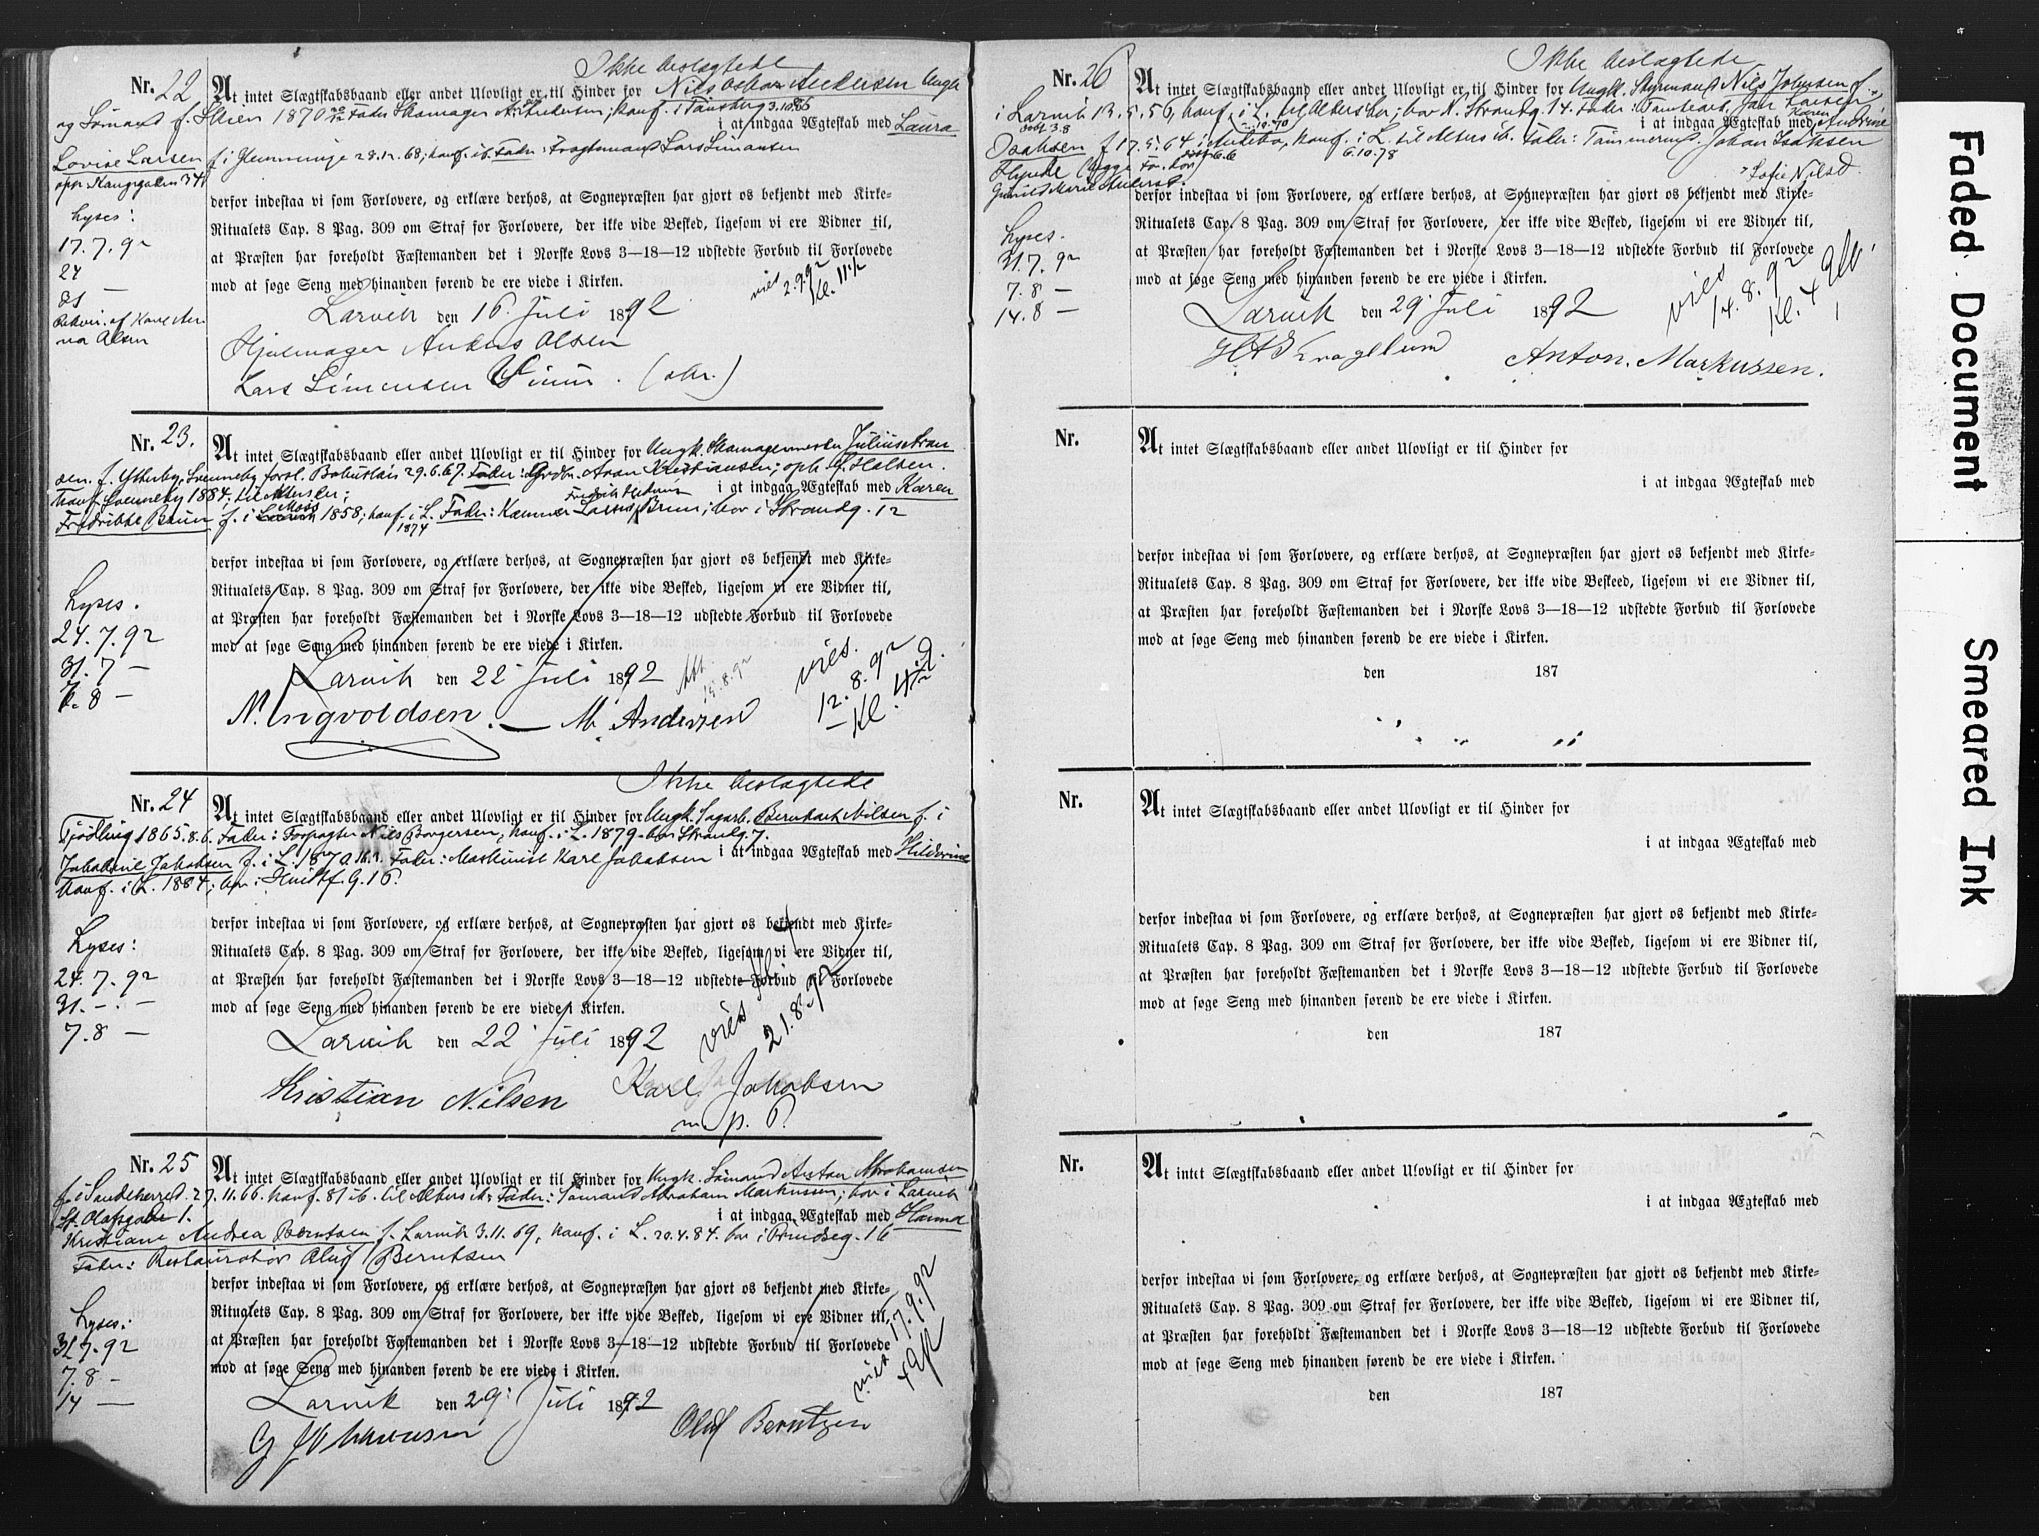 Ikke beslægtede
Nr. 22 At intet Slægtskabsbaand eller andet Ulovligt er til Hinder for Nils Oskar Andersen Ungk.
og Sømand f. Skien 1870 Fader Skomager Andersen; konf. i Tønsberg 3.10.86
i at indgaa Ægteskab med Laura
Lovise Larsen f. i Glemminge 28.12.68, konf. ib. Fader: Fragtemand Lars Simonsen
opp. Kongegaden 34
derfor indestaa vi som Forlovere, og erklære derhos, at Sognepræsten har gjort os bekjendt med Kirke-
Ritualets Cap. 8 Pag. 309 om Straf for Forlovere, der ikke vide Besked, ligesom vi ere Vidner til,
at Præsten har foreholdt Fæstemanden det i Norske Lovs 3—18—12 udstedte Forbud til Forlovede
mod at søge Seng med hinanden førend de ere viede i Kirken.
Lyses:
17.7.92
24
31 —
Rekvir. af Karl An.
Olsen
vies 2.9.92 Kl. 11½
Larvik den 16 Juli 1892
Hjulmager Anders Olsen
Lars Simensen
Nr. 23. At intet Slægtskabsbaand eller andet Ulovligt er til Hinder for Ungk. Skomagermester Julius Aron
sen f. Ytterby, Svenneby forsl. Bohuslän 29.6.67. Fader: Grdbr. Aron Kristiansen; oph. G. Halsen.
konf. Svenneby 1884, til Alters ler; i at indgaa Ægteskab med Karen
Fredrikke Bruun f. i Larvik Moss 1858; konf. i L. 1874 Fader: Kæmner Fredrik Bruun; bor i Strandg. 12
derfor indestaa vi som Forlovere, og erklære derhos, at Sognepræsten har gjort os bekjendt med Kirke-
Ritualets Cap. 8 Pag. 309 om Straf for Forlovere, der ikke vide Besked, ligesom vi ere Vidner til,
at Præsten har foreholdt Fæstemanden det i Norske Lovs 3—18—12 udstedte Forbud til Forlovede
mod at søge Seng med hinanden førend de ere viede i Kirken.
Lyses.
24.7.92
31.7 —
7.8 —
Larvik den 22 Juli 1892
Att. 15.8.92
vies. 12.8.92
N. Ingvoldsen. — M. Andersen
Ikke beslægtede
Nr. 24 At intet Slægtskabsbaand eller andet Ulovligt er til Hinder for Ungk. Sagarb. Bernhart Nilsen f. i
Tjødling 1865.8.6. Fader: Forpagter Nils Borgersen; konf. i L. 1879. bor Strandg. 7.
i at indgaa Ægteskab med Hildevine
Jakobine Jakobsen f. i L. 1870 Fader: Maskinist Karl Jakobsen
konf. i L. 1884; bor i Hvittf. G. 16.
derfor indestaa vi som Forlovere, og erklære derhos, at Sognepræsten har gjort os bekjendt med Kirke-
Ritualets Cap. 8 Pag. 309 om Straf for Forlovere, der ikke vide Besked, ligesom vi ere Vidner til,
at Præsten har foreholdt Fæstemanden det i Norske Lovs 3—18—12 udstedte Forbud til Forlovede
mod at søge Seng med hinanden førend de ere viede i Kirken.
Lyses:
24.7.92
31. — . —
7.8 —
vies Kl. 4 21.8.92
Larvik den 22 Juli 1892
Kristian Nilsen Karl Jakobsen
m. p. P.
Nr. 25 At intet Slægtskabsbaand eller andet Ulovligt er til Hinder for Ungk. Sømand Anton Abrahamsen
f. i Sandeherred. 27.11.66. konf. 81 ib. til Alters Fader: Sømand Abraham Markussen; bor i Larvik
St. Olafsgade 1. i at indgaa Ægteskab med Hanna
Kristiane Andrea Berntsen f. Larvik 3.11.69, konf. i L. 20.4.84. bor i Prindseg. 16
Fader: Restauratør Oluf Berntsen
derfor indestaa vi som Forlovere, og erklære derhos, at Sognepræsten har gjort os bekjendt med Kirke-
Ritualets Cap. 8 Pag. 309 om Straf for Forlovere, der ikke vide Besked, ligesom vi ere Vidner til,
at Præsten har foreholdt Fæstemanden det i Norske Lovs 3—18—12 udstedte Forbud til Forlovede
mod at søge Seng med hinanden førend de ere viede i Kirken.
Lyses:
31.7.92
7.8 —
14 —
viet 17.9.92
Larvik den 29 Juli 1892
Oluf Berntzen
Ikke beslægtede
Nr. 26 At intet Slægtskabsbaand eller andet Ulovligt er til Hinder for Ungk. Styrmand Nils Johnsen f.
i Larvik 13.5.56, konf. i L. til Alters her; bor N. Strandg. 14. Fader: Tømtearb. Jan Larsen
i at indgaa Ægteskab med Karen Andrine
Isaksen f. 17.5.64 i konf. i L. 6.10.78 til Alters ib. Fader: Tømmermd. Johan Isaksen
Sofie Nilsd.
derfor indestaa vi som Forlovere, og erklære derhos, at Sognepræsten har gjort os bekjendt med Kirke-
Ritualets Cap. 8 Pag. 309 om Straf for Forlovere, der ikke vide Besked, ligesom vi ere Vidner til,
at Præsten har foreholdt Fæstemanden det i Norske Lovs 3—18—12 udstedte Forbud til Forlovede
mod at søge Seng med hinanden førend de ere viede i Kirken.
Lyses.
31.7.92
7.8 —
14.8 —
vies 14.8.92 Kl. 4
Larvik den 29 Juli 1892
Anton. Markussen.
Nr. At intet Slægtskabsbaand eller andet Ulovligt er til Hinder for
i at indgaa Ægteskab med
derfor indestaa vi som Forlovere, og erklære derhos, at Sognepræsten har gjort os bekjendt med Kirke-
Ritualets Cap. 8 Pag. 309 om Straf for Forlovere, der ikke vide Besked, ligesom vi ere Vidner til,
at Præsten har foreholdt Fæstemanden det i Norske Lovs 3—18—12 udstedte Forbud til Forlovede
mod at søge Seng med hinanden førend de ere viede i Kirken.
den 187
Nr. At intet Slægtskabsbaand eller andet Ulovligt er til Hinder for
i at indgaa Ægteskab med
derfor indestaa vi som Forlovere, og erklære derhos, at Sognepræsten har gjort os bekjendt med Kirke-
Ritualets Cap. 8 Pag. 309 om Straf for Forlovere, der ikke vide Besked, ligesom vi ere Vidner til,
at Præsten har foreholdt Fæstemanden det i Norske Lovs 3—18—12 udstedte Forbud til Forlovede
mod at søge Seng med hinanden førend de ere viede i Kirken.
den 187
Nr. At intet Slægtskabsbaand eller andet Ulovligt er til Hinder for
i at indgaa Ægteskab med
derfor indestaa vi som Forlovere, og erklære derhos, at Sognepræsten har gjort os bekjendt med Kirke-
Ritualets Cap. 8 Pag. 309 om Straf for Forlovere, der ikke vide Besked, ligesom vi ere Vidner til,
at Præsten har foreholdt Fæstemanden det i Norske Lovs 3—18—12 udstedte Forbud til Forlovede
mod at søge Seng med hinanden førend de ere viede i Kirken.
den 187
Faded Document
Smeared Ink